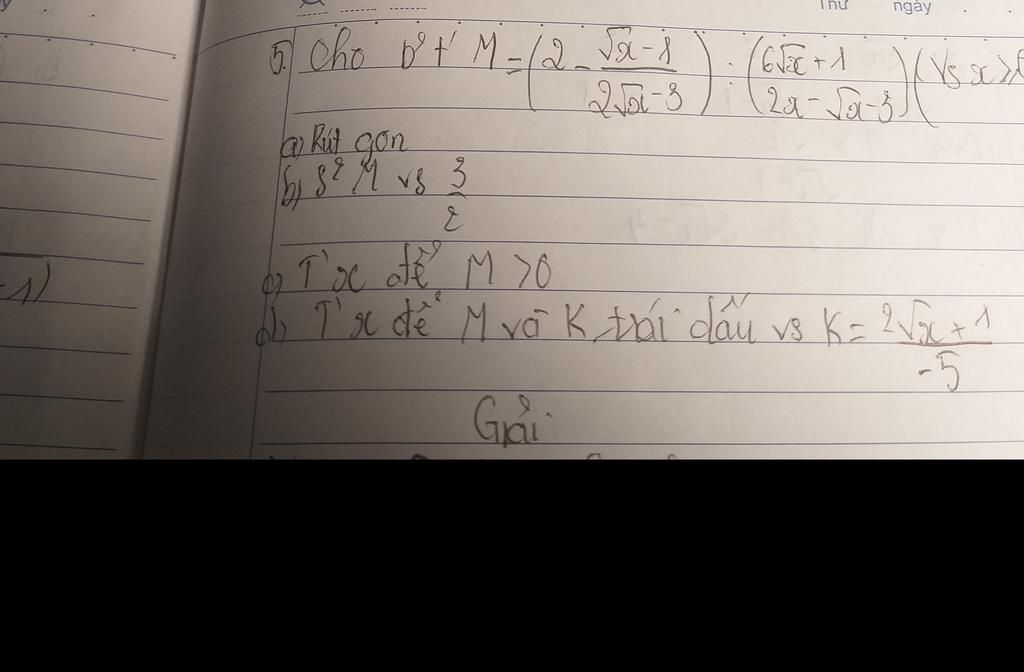 Thứ ngày
5. Cho b't' M = (2 - \frac{\sqrt{x}-1}{2\sqrt{x}-3}) : (\frac{6\sqrt{x}+1}{2x-\sqrt{x}-3}) (vs x >
a) Rút gọn
b) s² M vs \frac{3}{2}
c) T' x để M > 0
d) T' x để M và K trái dấu vs K = \frac{2\sqrt{x}+1}{-5}
-1)
Giải